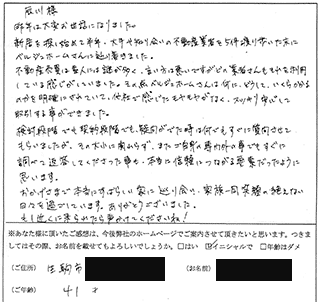 辰川様
昨年は大変お世話になりました。
新居を探し始めて半年、大手や知り合いの不動産業者を5件渡り歩いた末に
ベルジェホームさんに辿り着きました。
不動産売買は素人には謎が多く、言い方は悪いですがどの業者さんもそれを利用
している感じがしていました。その点ベルジェホームさんは何に、どうして、いくらかかる
のかを明確にされていて、他所で感じたモヤモヤがなく、スッキリ安心して
取引する事ができました。
検討段階でも契約段階でも、疑問がでた時は何でもすぐに質問させて
もらいましたが、その大小に関わらず、またご自身の専門外の事でもすぐに
調べて返答してくださった事も、本当に信頼につながる要素だったように
思います。
おかげさまで本当にすばらしい家に辿り合い、家族一同笑顔の絶えない
日々を過ごしています。ありがとうございました。
もし近くに来られたら声かけてくださいね!
※あなた様に頂いたご感想は、今後弊社のホームページでご案内させて頂きたいと思います。つきま
してはその際、お名前を載せてもよろしいでしょうか。□はい ☑イニシャルで □年齢はダメ
(ご住所) 生駒市 (お名前)
(ご年齢) 41 才